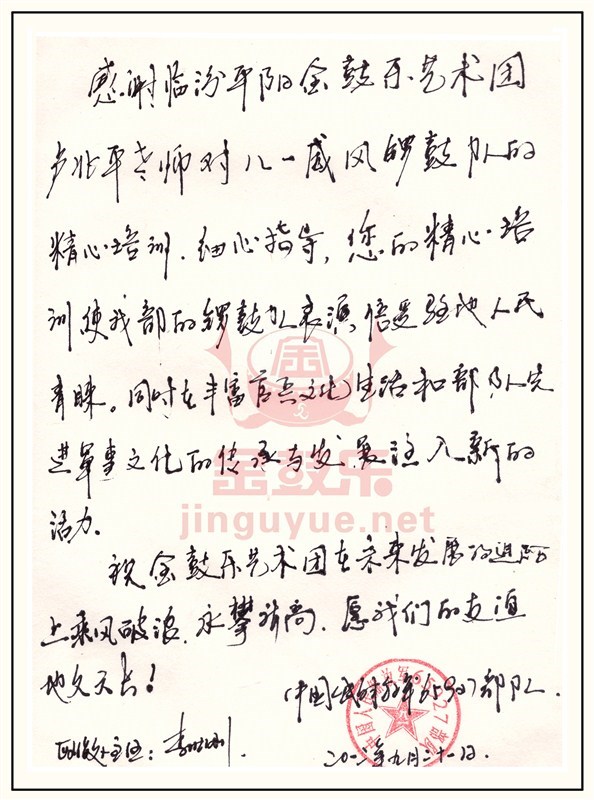 感谢临汾平阳金鼓乐艺术团
卢兆平老师对八一威风锣鼓队的
精心培训.细心指导,您的精心培
训使我部的锣鼓队表演,倍受驻地人民
青睐。同时在丰富官兵文化生活和部队先
进军事文化的传承与发展注入新的
活力.
祝金鼓乐艺术团在未来发展的道路
上乘风破浪.永攀新高.愿我们的友谊
地久天长!
中国人民解放军 部队.
主任:李
年九月二十一日.
金
金鼓乐
jinguyue.net